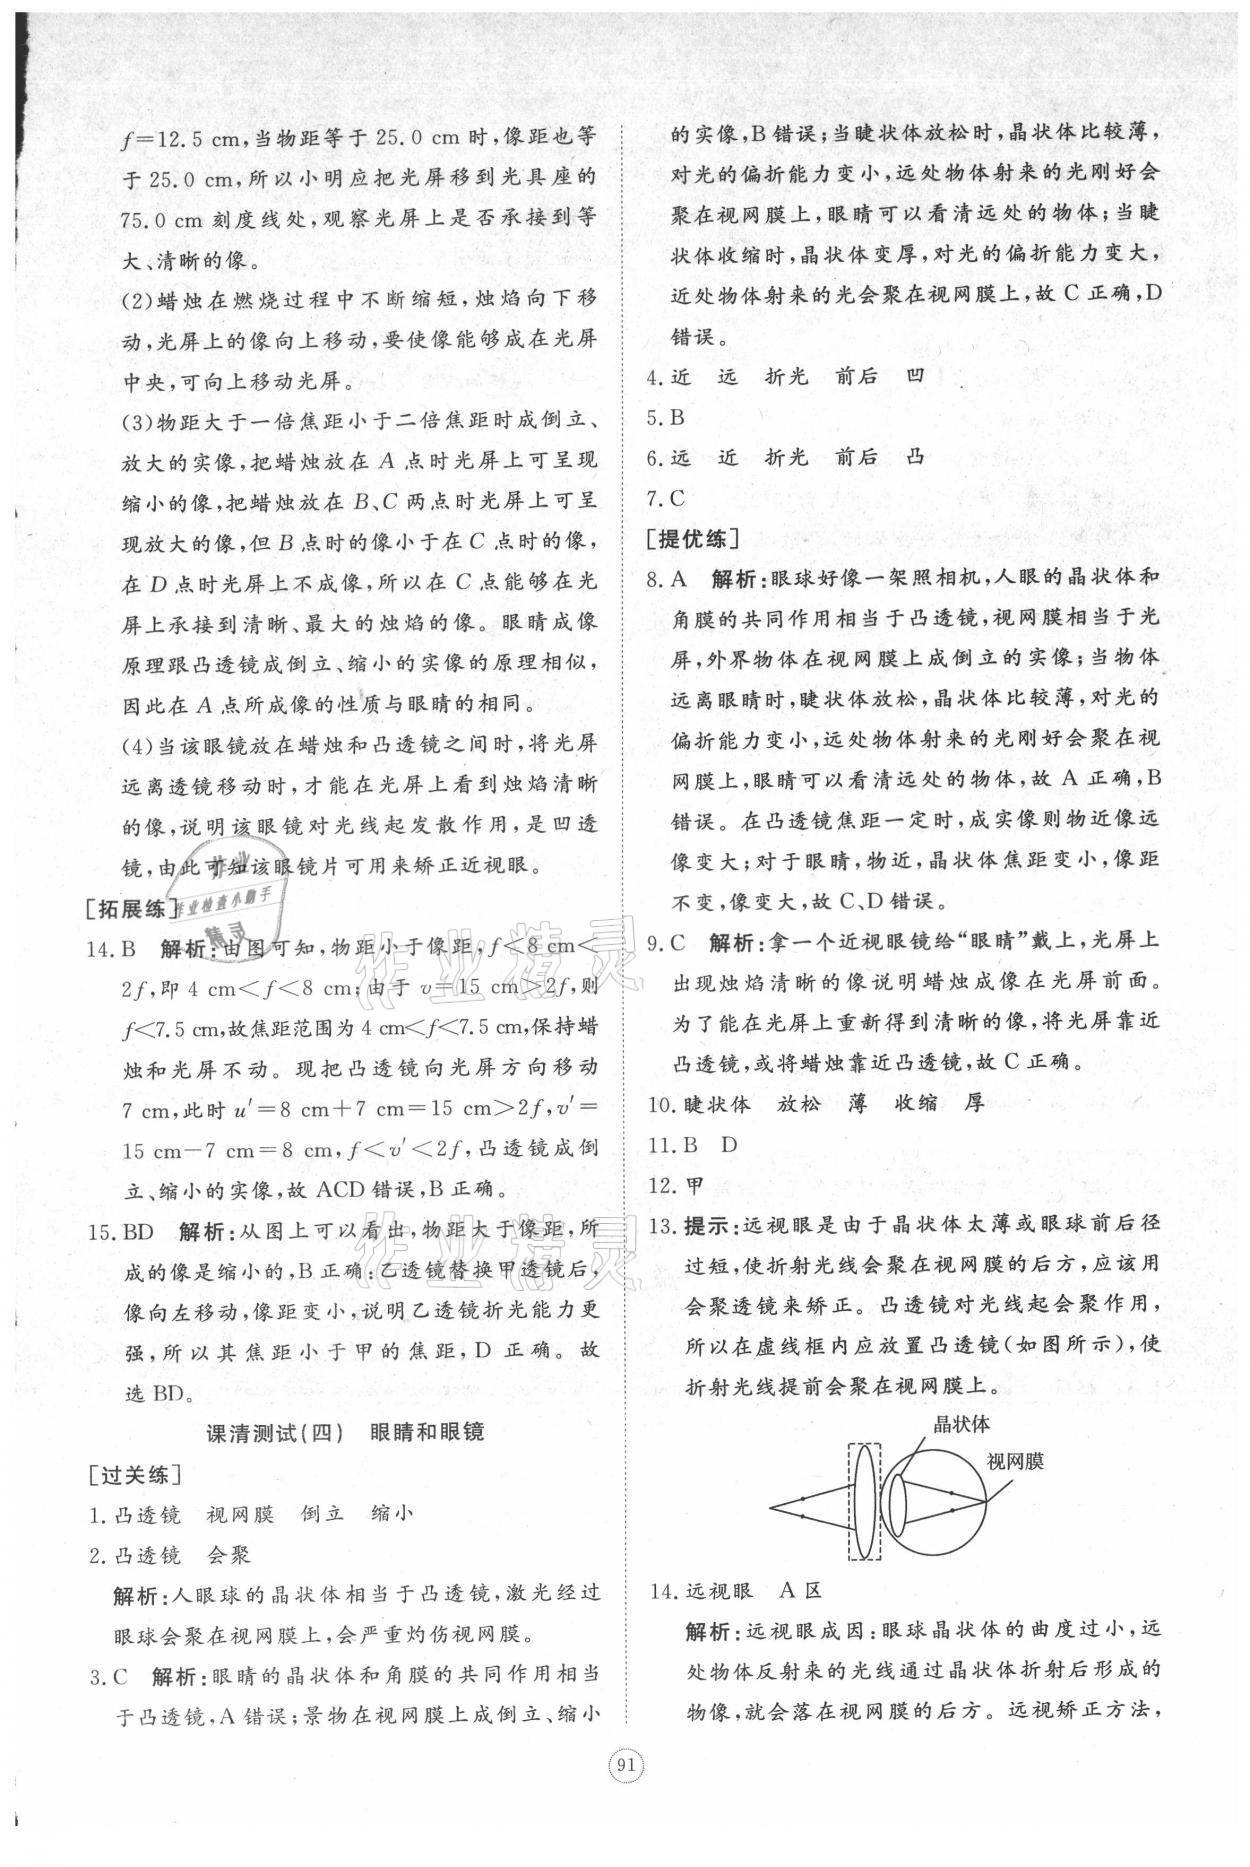 f=12.5 cm,当物距等于 25.0 cm 时,像距也等
于 25.0 cm,所以小明应把光屏移到光具座的
75.0 cm 刻度线处,观察光屏上是否承接到等
大、清晰的像。
(2)蜡烛在燃烧过程中不断缩短,烛焰向下移
动,光屏上的像向上移动,要使像能够成在光屏
中央,可向上移动光屏。
(3)物距大于一倍焦距小于二倍焦距时成倒立、
放大的实像,把蜡烛放在 A 点时光屏上可呈现
缩小的像,把蜡烛放在 B、C 两点时光屏上可呈
现放大的像,但 B 点时的像小于在 C 点时的像,
在 D 点时光屏上不成像,所以在 C 点能够在光
屏上承接到清晰、最大的烛焰的像。眼睛成像
原理跟凸透镜成倒立、缩小的实像的原理相似,
因此在 A 点所成像的性质与眼睛的相同。
(4)当该眼镜放在蜡烛和凸透镜之间时,将光屏
远离透镜移动时,才能在光屏上看到烛焰清晰
的像,说明该眼镜对光线起发散作用,是凹透
镜,由此可知该眼镜片可用来矫正近视眼。
[拓展练]
14. B 解析:由图可知,物距小于像距,f<8 cm<
2f,即 4 cm<f<8 cm;由于 v=15 cm>2f,则
f<7.5 cm,故焦距范围为 4 cm<f<7.5 cm,保持蜡
烛和光屏不动。现把凸透镜向光屏方向移动
7 cm,此时 u′=8 cm+7 cm=15 cm>2f,v′=
15 cm-7 cm=8 cm,f<v′<2f,凸透镜成倒
立、缩小的实像,故 ACD 错误,B 正确。
15. BD 解析:从图上可以看出,物距大于像距,所
成的像是缩小的,B 正确;乙透镜替换甲透镜后,
像向左移动,像距变小,说明乙透镜折光能力更
强,所以其焦距小于甲的焦距,D 正确。故
选 BD。
课清测试(四) 眼睛和眼镜
[过关练]
1. 凸透镜 视网膜 倒立 缩小
2. 凸透镜 会聚
解析:人眼球的晶状体相当于凸透镜,激光经过
眼球会聚在视网膜上,会严重灼伤视网膜。
3. C 解析:眼睛的晶状体和角膜的共同作用相当
于凸透镜,A 错误;景物在视网膜上成倒立、缩小
的实像,B 错误;当睫状体放松时,晶状体比较薄,
对光的偏折能力变小,远处物体射来的光刚好会
聚在视网膜上,眼睛可以看清远处的物体;当睫
状体收缩时,晶状体变厚,对光的偏折能力变大,
近处物体射来的光会聚在视网膜上,故 C 正确,D
错误。
4. 近 远 折光 前后 凹
5. B
6. 远 近 折光 前后 凸
7. C
[提优练]
8. A 解析:眼球好像一架照相机,人眼的晶状体和
角膜的共同作用相当于凸透镜,视网膜相当于光
屏,外界物体在视网膜上成倒立的实像;当物体
远离眼睛时,睫状体放松,晶状体比较薄,对光的
偏折能力变小,远处物体射来的光刚好会聚在视
网膜上,眼睛可以看清远处的物体,故 A 正确,B
错误。在凸透镜焦距一定时,成实像则物近像远
像变大;对于眼睛,物近,晶状体焦距变小,像距
不变,像变大,故 C、D 错误。
9. C 解析:拿一个近视眼镜给“眼睛”戴上,光屏上
出现烛焰清晰的像说明蜡烛成像在光屏前面。
为了能在光屏上重新得到清晰的像,将光屏靠近
凸透镜,或将蜡烛靠近凸透镜,故 C 正确。
10. 睫状体 放松 薄 收缩 厚
11. B D
12. 甲
13. 提示:远视眼是由于晶状体太薄或眼球前后径
过短,使折射光线会聚在视网膜的后方,应该用
会聚透镜来矫正。凸透镜对光线起会聚作用,
所以在虚线框内应放置凸透镜(如图所示),使
折射光线提前会聚在视网膜上。
晶状体
视网膜
14. 远视眼 A 区
解析:远视眼成因:眼球晶状体的曲度过小,远
处物体反射来的光线通过晶状体折射后形成的
物像,就会落在视网膜的后方。远视矫正方法,
91
作业
作业检查小助手
精灵
作业精灵
作业精灵